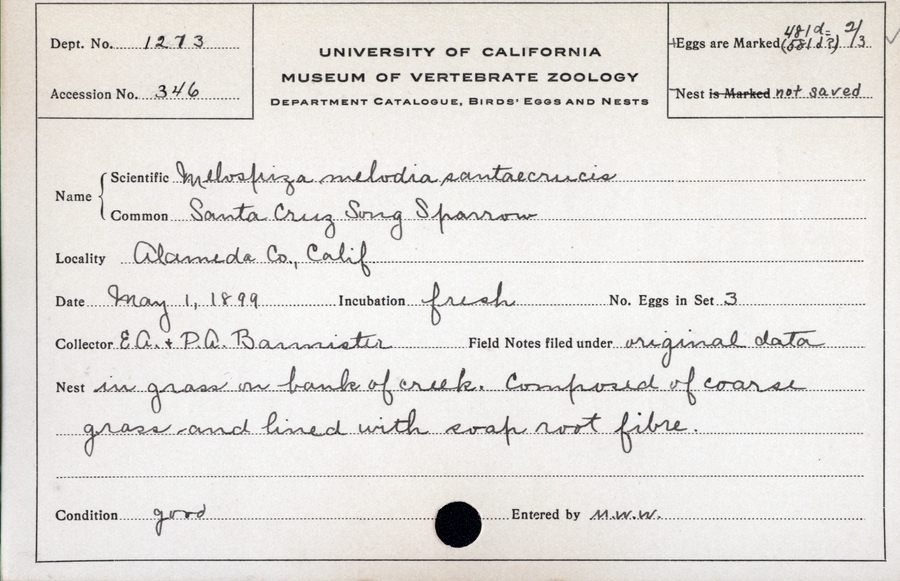 Dept. No. 1273
Accession No. 346
UNIVERSITY OF CALIFORNIA
MUSEUM OF VERTEBRATE ZOOLOGY
DEPARTMENT CATALOGUE, BIRDS' EGGS AND NESTS
481d= 2/3
Eggs are Marked (581d?)
Nest is Marked not saved
Name
Scientific Melospiza melodia santaecrucis
Common Santa Cruz Song Sparrow
Locality Alameda Co., Calif
Date May 1, 1899 Incubation fresh No. Eggs in Set 3
Collector E.A. + P.A. Bannister Field Notes filed under original data
Nest in grass on bank of creek. Composed of coarse
grass and lined with soap root fibre.
Condition good Entered by M.W.W.